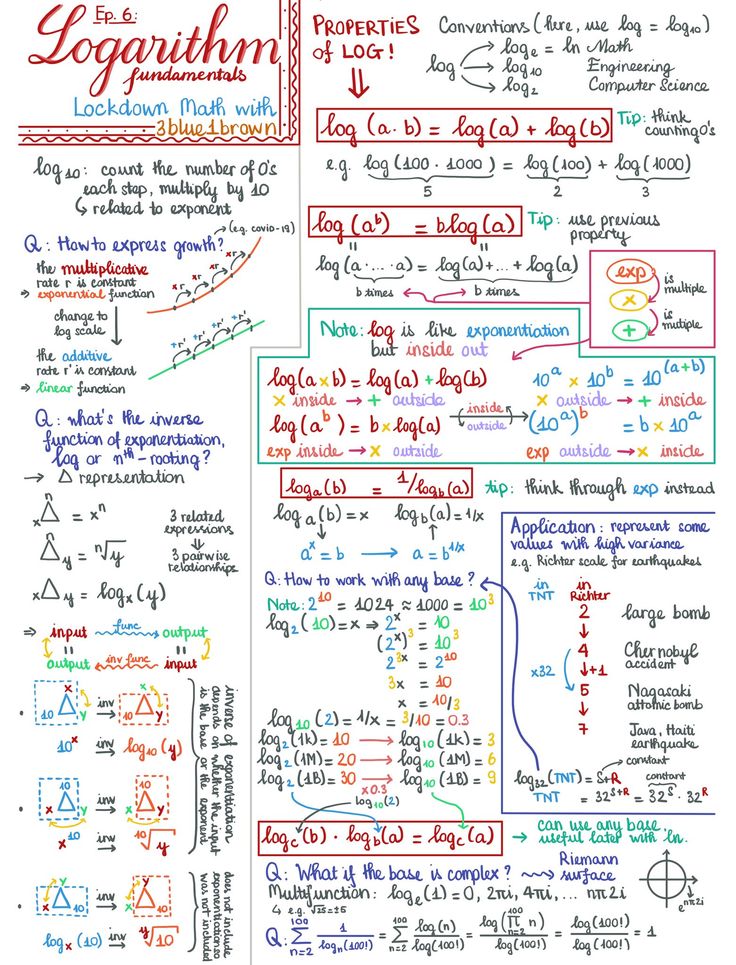 Ep. 6:
Logarithm
fundamentals
Lockdown Math with
3blue1brown
log₁₀: count the number of 0's
each step, multiply by 10
↳ related to exponent
Q: How to express growth?
→ (e.g. covid-19)
the multiplicative
rate r is constant
⇒ exponential function
xr xr xr xr
change to
log scale
the additive
rate r' is constant
⇒ linear function
+r' +r' +r' +r'
Q: what's the inverse
function of exponentiation,
log or nth-rooting?
→ Δ representation
xΔⁿ = xⁿ
ⁿΔy = ⁿ√y
xΔy = logₓ(y)
3 related
expressions
⇓
3 pairwise
relationships
⇒ input func output
output inv func input
10 Δ x y inv → 10 Δ x y
10ˣ inv → log₁₀(y)
x Δ 10 y inv → x Δ 10 y
x¹⁰ inv → ¹⁰√y
x Δ y 10 inv → x Δ y 10
logₓ(10) inv → ʸ√10
inverse of exponentiation
depends on whether the input
is the base or the exponent
does not include
exponentiation so
was not included
PROPERTIES
of LOG!
Conventions (here, use log = log₁₀)
log
logₑ = ln Math
log₁₀ Engineering
log₂ Computer Science
log(a·b) = log(a) + log(b)
Tip: think
counting 0's
e.g. log(100·1000) = log(100) + log(1000)
5 2 3
log(aᵇ) = b log(a)
Tip: use previous
property
log(a·...·a) = log(a)+...+ log(a)
b times b times
exp
x
+
is
multiple
is
mutiple
Note: log is like exponentiation
but inside out
log(a×b) = log(a) + log(b)
x inside → + outside
log(aᵇ) = b×log(a)
exp inside → x outside
inside
outside
10ᵃ × 10ᵇ = 10⁽ᵃ⁺ᵇ⁾
x outside → + inside
(10ᵃ)ᵇ = b x 10ᵃ
exp outside → x inside
logₐ(b) = 1/log_b(a)
tip: think through exp instead
logₐ(b) = x log_b(a) = 1/x
aˣ = b → a = b^(1/x)
Q: How to work with any base?
Note: 2¹⁰ = 1024 ≈ 1000 = 10³
log₂(10) = x ⇒ 2ˣ = 10
(2ˣ)³ = 10³
2³ˣ = 2¹⁰
3x = 10
x = 10/3
log₁₀(2) = 1/x = 3/10 = 0.3
log₂(1k) = 10 → log₁₀(1k) = 3
log₂(1M) = 20 → log₁₀(1M) = 6
log₂(1B) = 30 → log₁₀(1B) = 9
x0.3
log₁₀(2)
log_c(b) · log_b(a) = log_c(a)
→ can use any base,
useful later with 'ln.
Application: represent some
values with high variance
e.g. Richter scale for earthquakes
in
TNT
in
Richter
2 large bomb
4 Chernobyl
accident
x32
+1
5 Nagasaki
attomic bomb
7 Java, Haiti
earthquake
constant
log₃₂(TNT) = S+R
constant
TNT = 32^(S+R) = 32^S · 32^R
Q: What if the base is complex? → Riemann
surface
Multifunction: logₑ(1) = 0, 2πi, 4πi, ... nπ2i
↳ e.g. √25 = ±5
e^(nπ2i)
Q: ∑_{n=2}^{100} 1/logₙ(100!) = ∑_{n=2}^{100} log(n)/log(100!) = log(∏_{n=2}^{100} n)/log(100!) = log(100!)/log(100!) = 1